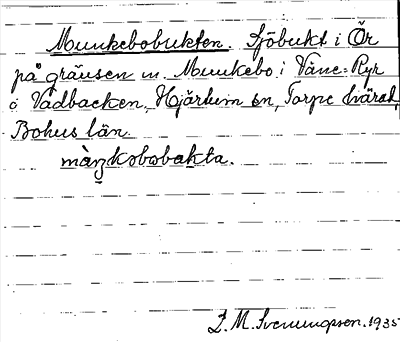 Munkebobukten. Sjöbukt i Ör
på gränsen m. Munkebo i Väne-Ryr
o Vadbacken, Hjärtum sn, Torpe härad,
Bohus län.
màŋkobobakta.
J. M. Svenungsson. 1935